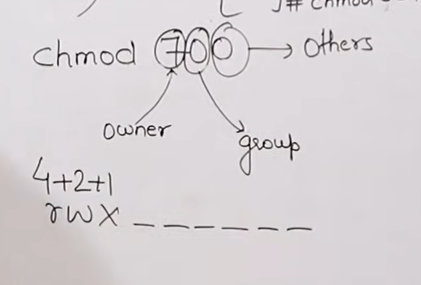 J# chmod
chmod 700 → Others
owner
group
4+2+1
rwx ______